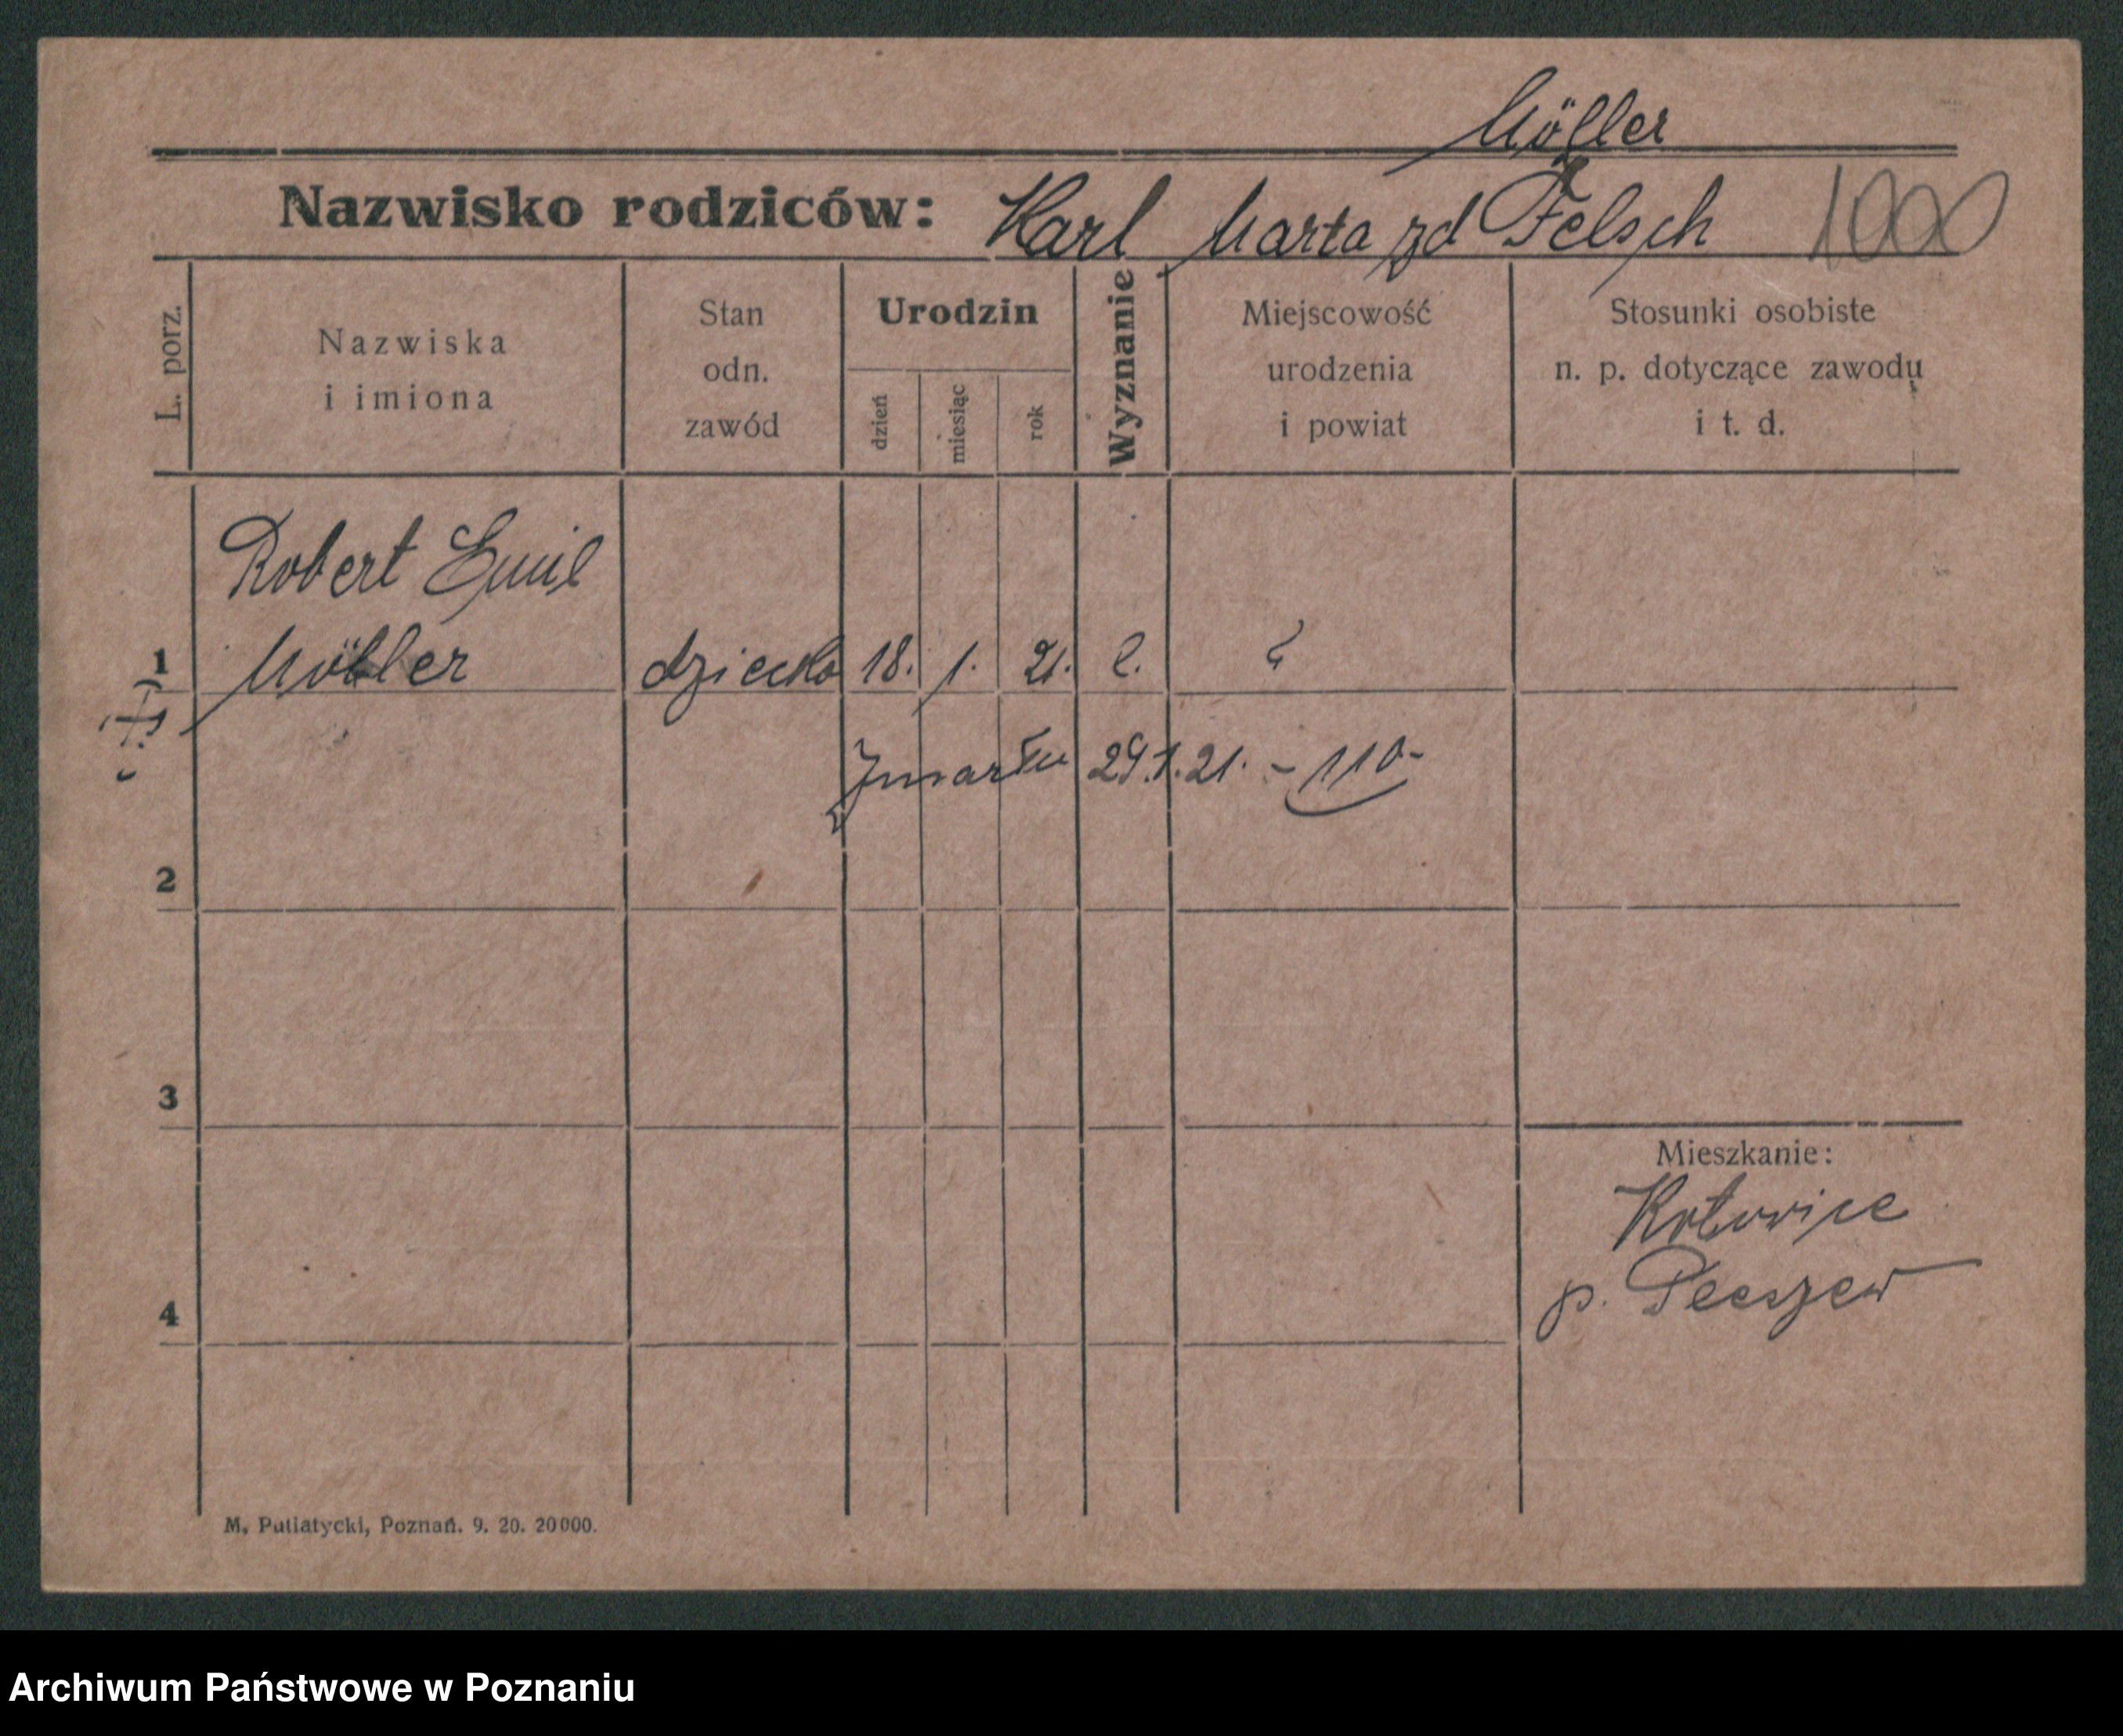 Möller
Nazwisko rodziców: Karl Marta zd Felsch 1000
L. porz.
Nazwiska
i imiona
Stan
odn.
zawód
Urodzin
dzień
miesiąc
rok
Wyznanie
Miejscowość
urodzenia
i powiat
Stosunki osobiste
n. p. dotyczące zawodu
i t. d.
Robert Emil
1 Möller dziecko 18. 1. 21. e.
Zmarłu 29.1.21. - 110-
2
3
4
Mieszkanie:
Kotowice
p. Pleszew
M. Putiatycki, Poznań. 9. 20. 20000.
Archiwum Państwowe w Poznaniu